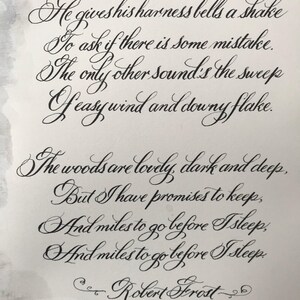 He gives his harness bells a shake
To ask if there is some mistake.
The only other sound's the sweep
Of easy wind and downy flake.
The woods are lovely, dark and deep,
But I have promises to keep,
And miles to go before I sleep,
And miles to go before I sleep.
Robert Frost